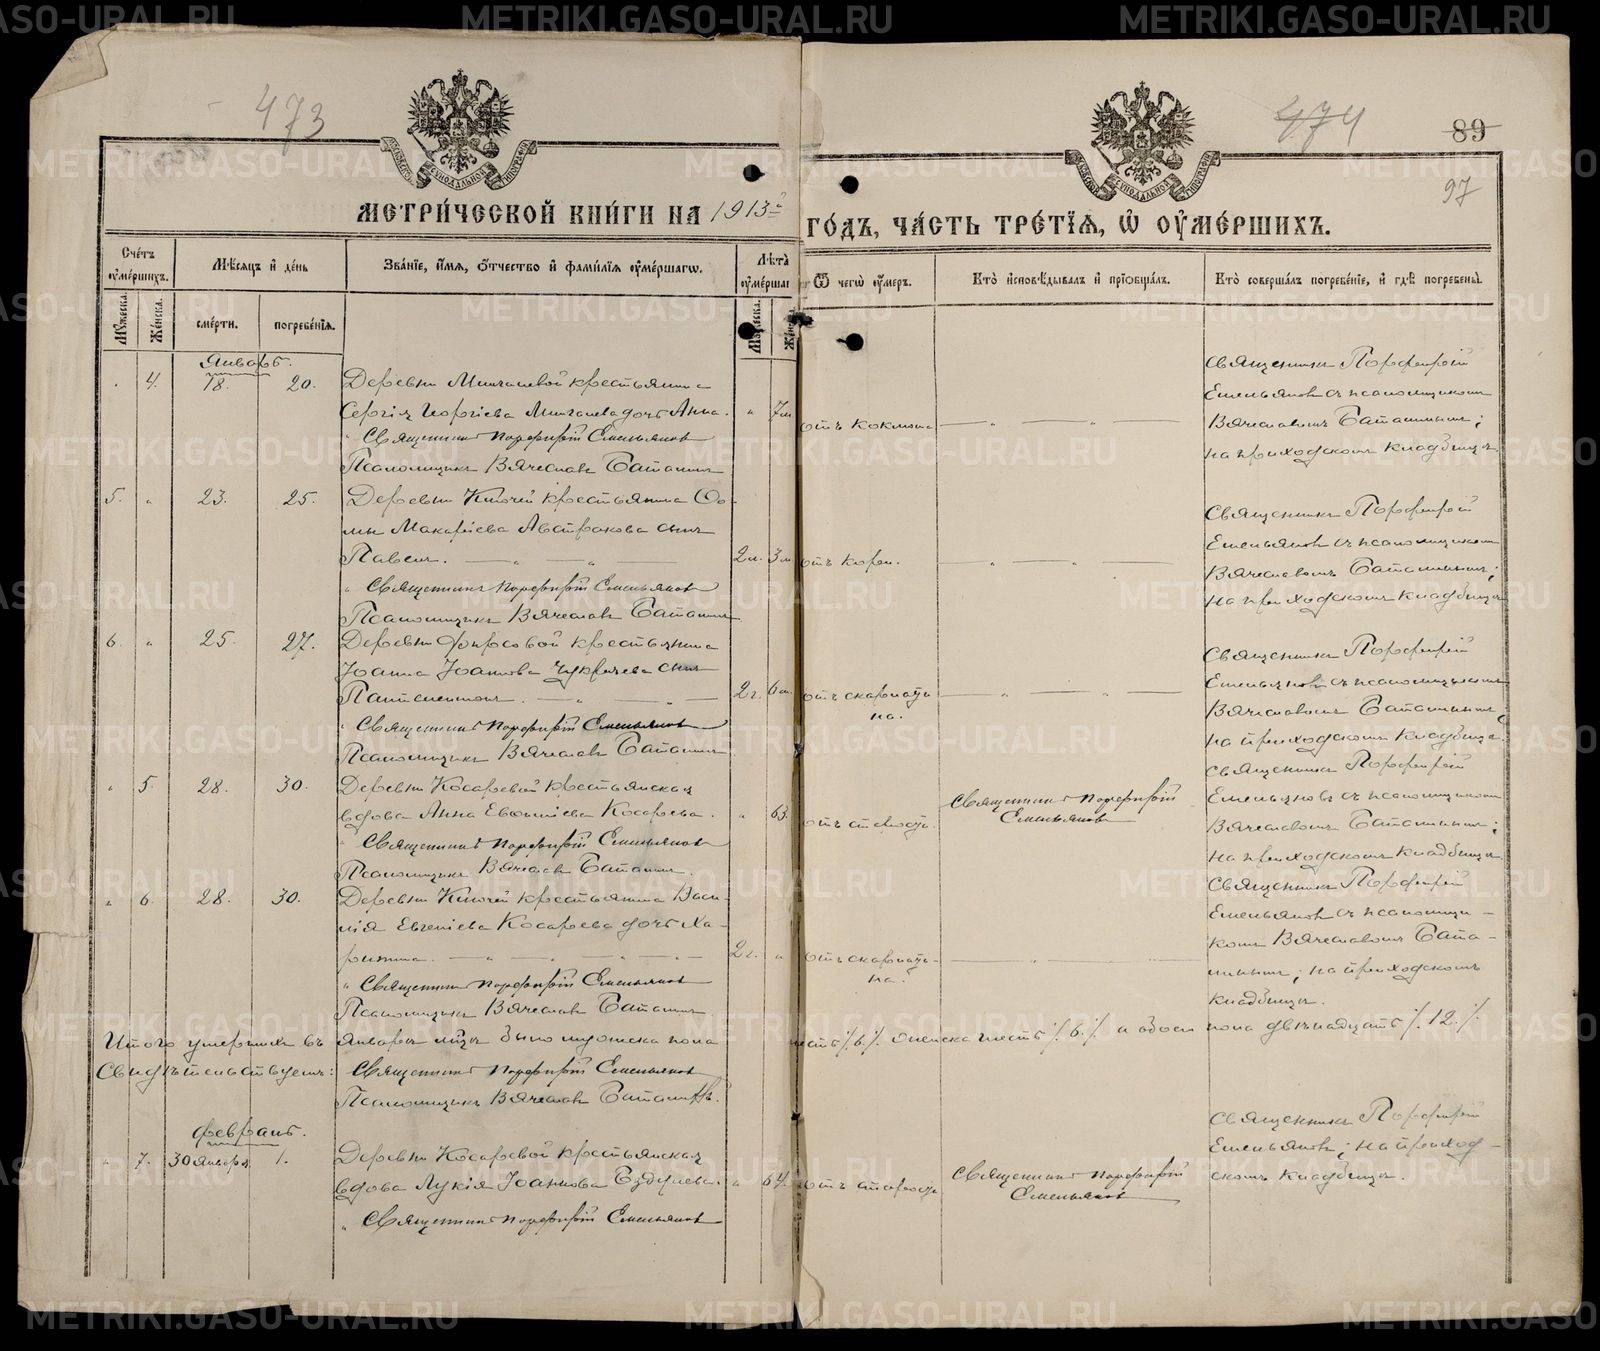 473
474
89
97
МЕТРИ́ЧЕСКОЙ КНИ́ГИ НА 1913й
ГО́ДЪ, ЧА́СТЬ ТРЕ́ТІѦ, Ѡ҆ ОУ҆МЕ́РШИХЪ.
Сче́тъ оу҆ме́ршихъ.
Мѣ́сяцъ и҆ де́нь
Зва́ніе, и҆́мѧ, ѻ҆́тчество и҆ фами́лїѧ оу҆ме́ршагѡ.
Лѣ́та оу҆ме́ршаг
Ѿ чегѡ̀ оу҆́меръ.
Кто̀ и҆сповѣ́дывалъ и҆ прїѻбща́лъ.
Кто̀ соверша́лъ погребе́ніе, и҆ гдѣ̀ погребены̀.
Мꙋ́жеска.
Же́нска.
сме́рти.
погребе́нїѧ.
Мꙋ́жеска.
Же́нс
Январь.
4. 18. 20. Деревни Мингалевой крестьянина
Сергія Георгіева Мингалева дочь Анна. " 7 м
Священникъ Порфирій Емельяновъ
Псаломщикъ Вячеславъ Баташинъ
отъ коклюша
Священникъ Порфирій
Емельяновъ съ псаломщикомъ
Вячеславомъ Баташинымъ;
на приходскомъ кладбищѣ.
5. " 23. 25. Деревни Ключей крестьянина Ѳо-
мы Макаріева Автракова сынъ
Павелъ. 2 м. 3 м
Священникъ Порфирій Емельяновъ
Псаломщикъ Вячеславъ Баташинъ
отъ кори.
Священникъ Порфирій
Емельяновъ съ псаломщикомъ
Вячеславомъ Баташинымъ;
на приходскомъ кладбищѣ
6 " 25. 27. Деревни Фирсовой крестьянина
Іоанна Іоаннова сынъ
Пантелеимонъ. 2 г. 6 м.
Священникъ Порфирій Емельяновъ
Псаломщикъ Вячеславъ Баташинъ
отъ скарлати-
на.
Священникъ Порфирій
Емельяновъ съ псаломщикомъ
Вячеславомъ Баташинымъ,
на приходскомъ кладбищѣ.
" 5. 28. 30. Деревни Косаревой крестьянская
вдова Анна Евѳиміева Косарева. " 63.
Священникъ Порфирій Емельяновъ
Псаломщикъ Вячеславъ Баташинъ.
отъ
Священникъ Порфирій
Емельяновъ
Священникъ Порфирій
Емельяновъ съ псаломщикомъ
Вячеславомъ Баташинымъ;
на приходскомъ кладбищѣ.
" 6. 28. 30. Деревни Ключей крестьянина Васи-
лія Евгеніева Косарева дочь Ха-
ритина. 2 г. "
Священникъ Порфирій Емельяновъ
Псаломщикъ Вячеславъ Баташинъ
отъ скарлати-
на.
Священникъ Порфирій
Емельяновъ съ псаломщи-
комъ Вячеславомъ Бата-
шинымъ; на приходскомъ
кладбищѣ.
Итого умершихъ въ Январѣ мцѣ было мужеска пола
шесть /.6./. женска шесть /.6./. и обоего пола двѣнадцать /.12./.
Свидѣтельствуемъ: Священникъ Порфирій Емельяновъ
Псаломщикъ Вячеславъ Баташинъ.
Февраль.
" 7. 30 января 1. Деревни Косаревой крестьянская
вдова Лукія Іоаннова " 64.
Священникъ Порфирій Емельяновъ
отъ старости
Священникъ Порфирій
Емельяновъ
Священникъ Порфирій
Емельяновъ; на приход-
скомъ кладбищѣ.
METRIKI.GASO-URAL.RU